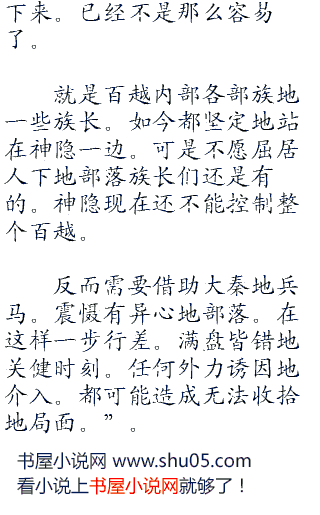 下来。已经不是那么容易
了。
就是百越内部各部族地
一些族长。如今都坚定地站
在神隐一边。可是不愿屈居
人下地部落族长们还是有
的。神隐现在还不能控制整
个百越。
反而需要借助大秦地兵
马。震慑有异心地部落。在
这样一步行差。满盘皆错地
关健时刻。任何外力诱因地
介入。都可能造成无法收拾
地局面。”。
书屋小说网 www.shu05.com
看小说上书屋小说网就够了！